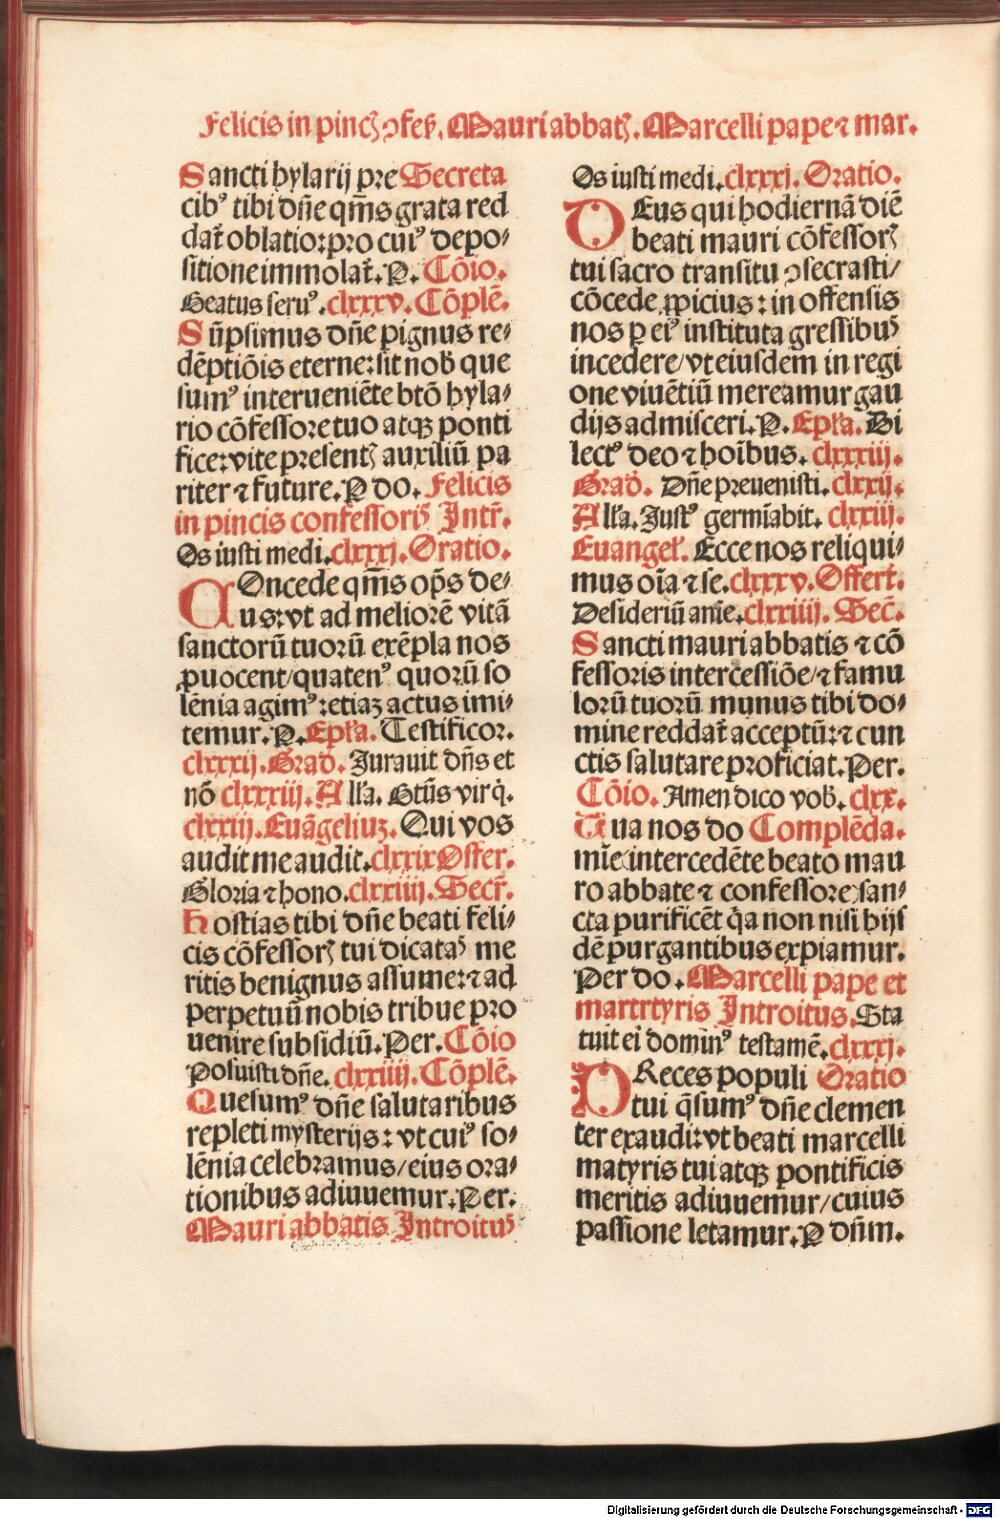 Felicis in pincꝭ ↄfeſꝭ. Mauri abbatꝭ. Marcelli pape ⁊ mar.
Sancti hylarij pre Secreta
cibꝰ tibi dn̄e qm̄s grata red
dat᷑ oblatio: pro cuiꝰ depo⸗
sitione immolat᷑. P. Cōio.
Beatus seruꝰ. clxxxv. Cōplē.
Sūpsimus dn̄e pignus re⸗
dēptiōis eterne: sit nob̄ que
sumꝰ interueniēte btō hyla⸗
rio cōfessore tuo atqꝫ ponti
fice: vite presentꝭ auxiliū pa
riter ⁊ future. P do. Felicis
in pincis confessorꝭ Intr̄.
Os iusti medi. clxxxj. Oratio.
COncede qm̄s op̄s de⸗
us: vt ad meliorē vitā
sanctorū tuorū exēpla nos
ꝓuocent/quatenꝰ quorū so
lēnia agimꝰ: etiaꝫ actus imi⸗
temur. P. Epl̄a. Testificor.
clxxxij. Grad̄. Jurauit dn̄s et
nō clxxxiij. All̄a. Stūs vir q̇.
clxxiij. Euāgeliuꝫ. Qui vos
audit me audit. clxxix Offer.
Gloria ⁊ hono. clxxiiij. Secr̄.
Hostias tibi dn̄e beati feli⸗
cis cōfessorꝭ tui dicatas me
ritis benignus assume: ⁊ ad
perpetuū nobis tribue pro
uenire subsidiū. Per. Cōio
Posuisti dn̄e. clxxiiij. Cōplē.
Quesumꝰ dn̄e salutaribus
repleti mysterijs: vt cuiꝰ so⸗
lēnia celebramus/eius ora⸗
tionibus adiuuemur. Per.
Mauri abbatis Introitus
Os iusti medi. clxxxj. Oratio.
DEus qui hodiernā diē
beati mauri cōfessorꝭ
tui sacro transitu ↄsecrasti/
cōcede ꝓpicius: in offensis
nos ꝑ eiꝰ instituta gressibus
incedere/vt eiusdem in regi
one viuētiū mereamur gau
dijs admisceri. P. Epl̄a. Di
lectꝰ deo ⁊ hoībus. clxxxiij.
Grad̄. Dn̄e preuenisti. clxxij.
All̄a. Justꝰ germīabit. clxxiij.
Euangel̄. Ecce nos reliqui⸗
mus oīa ⁊ se. clxxxv. Offert̄.
Desideriū anīe. clxxiiij. Sec̄.
Sancti mauri abbatis ⁊ cō
fessoris intercessiōe/⁊ famu
lorū tuorū munus tibi do⸗
mine reddat᷑ acceptū: ⁊ cun
ctis salutare proficiat. Per.
Cōio. Amen dico vob̄. clxx.
Tua nos do Complēda.
mīe (intercedēte beato mau
ro abbate ⁊ confessore) san⸗
cta purificēt q̄a non nisi hijs
dē purgantibus expiamur.
Per do. Marcelli pape et
martrtyris Introitus. Sta
tuit ei dominꝰ testamē. clxxxj.
PReces populi Oratio
tui q̄sumꝰ dn̄e clemen
ter exaudi: vt beati marcelli
matyris tui atqꝫ pontificis
meritis adiuuemur/cuius
passione letamur. P dn̄m.
Digitalisierung gefördert durch die Deutsche Forschungsgemeinschaft - DFG